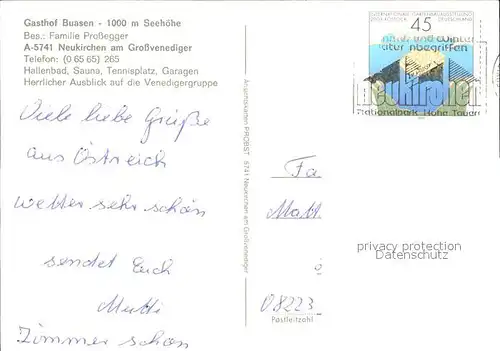 Gasthof Buasen - 1000 m Seehöhe
Bes.: Familie Proßegger
A-5741 Neukirchen am Großvenediger
Telefon: (0 65 65) 265
Hallenbad, Sauna, Tennisplatz, Garagen
Herrlicher Ausblick auf die Venedigergruppe
Viele liebe Grüße
aus Östreich
Wetter sehr schön
sendet Euch
Mutti
Zimmer schön
Alpenkarten PROBST 5741 Neukirchen am Großvenediger
45
natur begriffen
neukirchen
Nationalpark Hohe Tauern
Fa
Matt
privacy protection
Datenschutz
08223
Postleitzahl